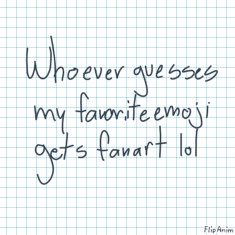 Whoever guesses
my favorite emoji
gets fanart lol
FlipAnim